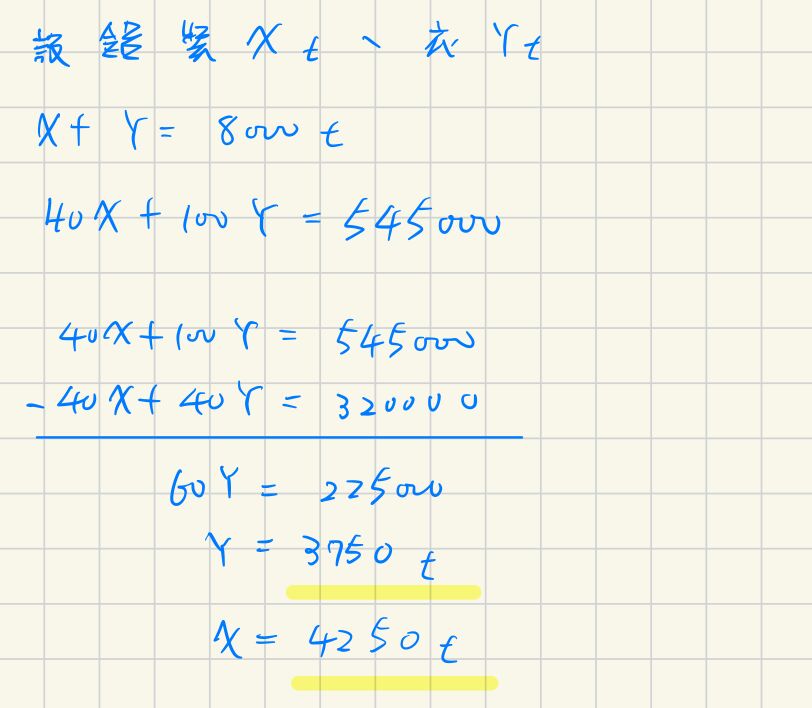 設鋁裝 X t、衣 Y t
X + Y = 8000 t
40X + 100Y = 545000
40X + 100Y = 545000
- 40X + 40Y = 320000
60Y = 225000
Y = 3750 t
X = 4250 t